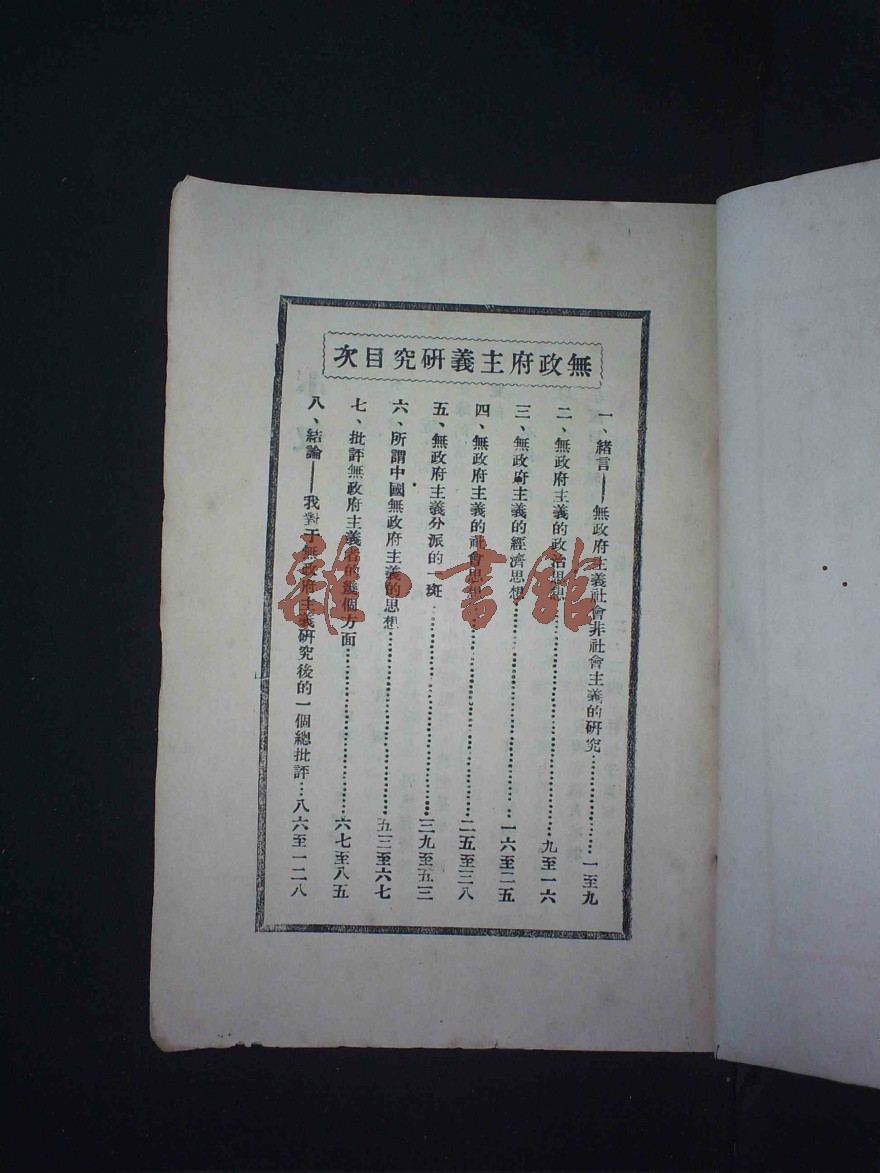 無政府主義研究目次
一、緒言——無政府主義社會非社會主義的研究…………一至九
二、無政府主義的政治思想…………九至一六
三、無政府主義的經濟思想…………一六至二五
四、無政府主義的社會思想…………二五至三八
五、無政府主義分派的一斑…………三九至五三
六、所謂中國無政府主義的思想…………五三至六七
七、批評無政府主義者的幾個方面…………六七至八五
八、結論——我對于無政府主義研究後的一個總批評…八六至一二八
雜·書館